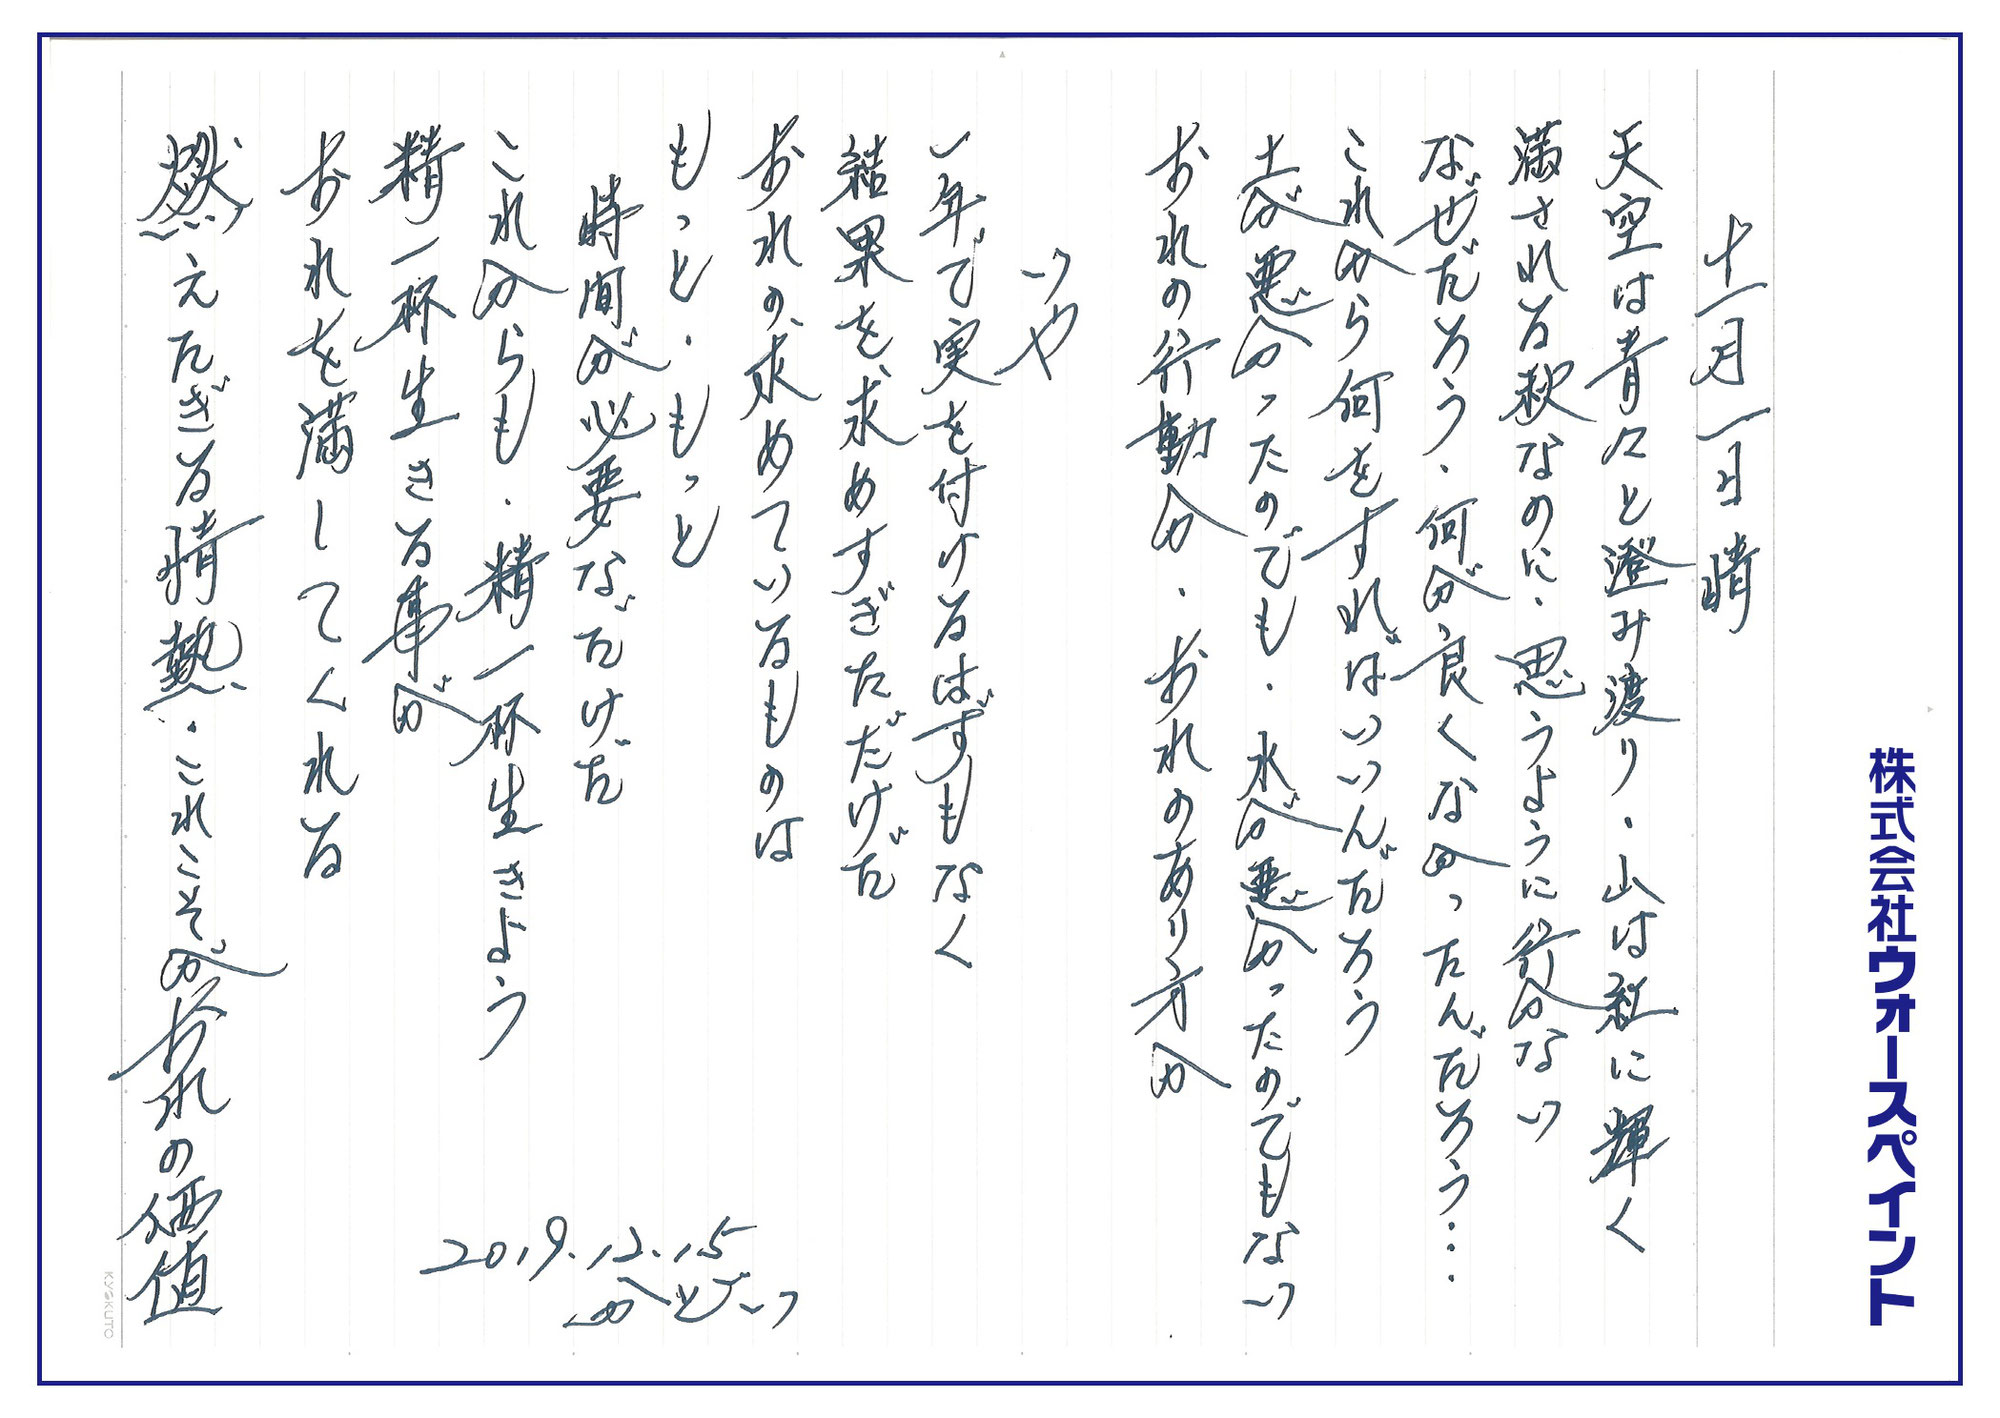 株式会社ウォースペイント
十一月一日 晴
天空は青々と澄み渡り、山は紅に輝く
満される秋なのに、思うように行かない
なぜだろう、何が良くなかったんだろう…
これから何をすればいいんだろう
土が悪かったのでも、水が悪かったのでもない
おれの行動か、おれのあり方か
いや
一年で実を付けるはずもなく
結果を求めすぎただけだ
おれの求めているものは
もっと、もっと
時間が必要なだけだ
これからも、精一杯生きよう
精一杯生きる事が
おれを満してくれる
燃えたぎる情熱、これこそがおれの価値
2019.12.15
かとごい
KYOKUTO